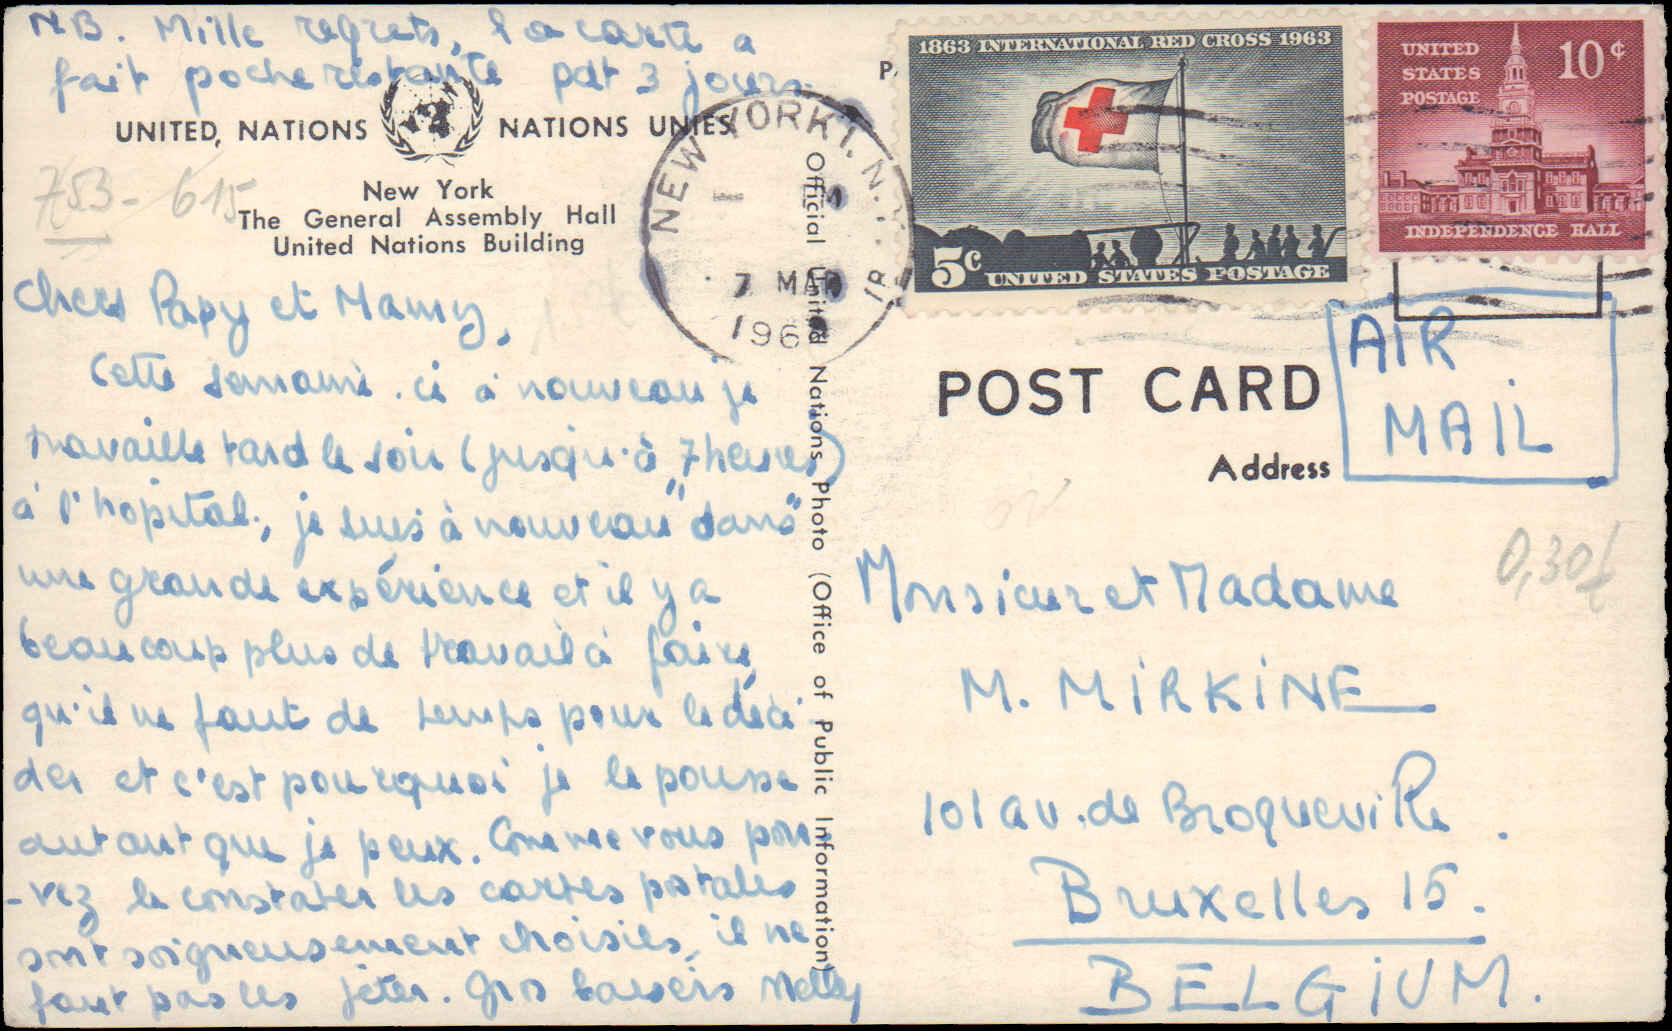 NB. Mille regrets, la carte a
fait poche restante pdt 3 jours.
UNITED NATIONS NATIONS UNIES
753- 615
New York
The General Assembly Hall
United Nations Building
Chers Papy et Mamy,
Cette semaine-ci à nouveau je
travaille tard le soir (jusqu'à 7 heures)
à l'hopital, je suis à nouveau "dans"
une grande expérience et il y a
beaucoup plus de travail à faire
qu'il ne faut de temps pour le déci
der et c'est pourquoi je le pousse
autant que je peux. Comme vous pou
-vez le constater les cartes postales
sont soigneusement choisies, il ne
faut pas les jeter. Gros baisers Nelly
Official United Nations Photo (Office of Public Information)
NEW YORK 1. N.Y.
7 MAR
196
P
1863 INTERNATIONAL RED CROSS 1963
5c UNITED STATES POSTAGE
UNITED
STATES
POSTAGE
10¢
INDEPENDENCE HALL
POST CARD
Address
AIR
MAIL
0,30£
Monsieur et Madame
M. MIRKINE
101 av. de Broqueville.
Bruxelles 15.
BELGIUM.